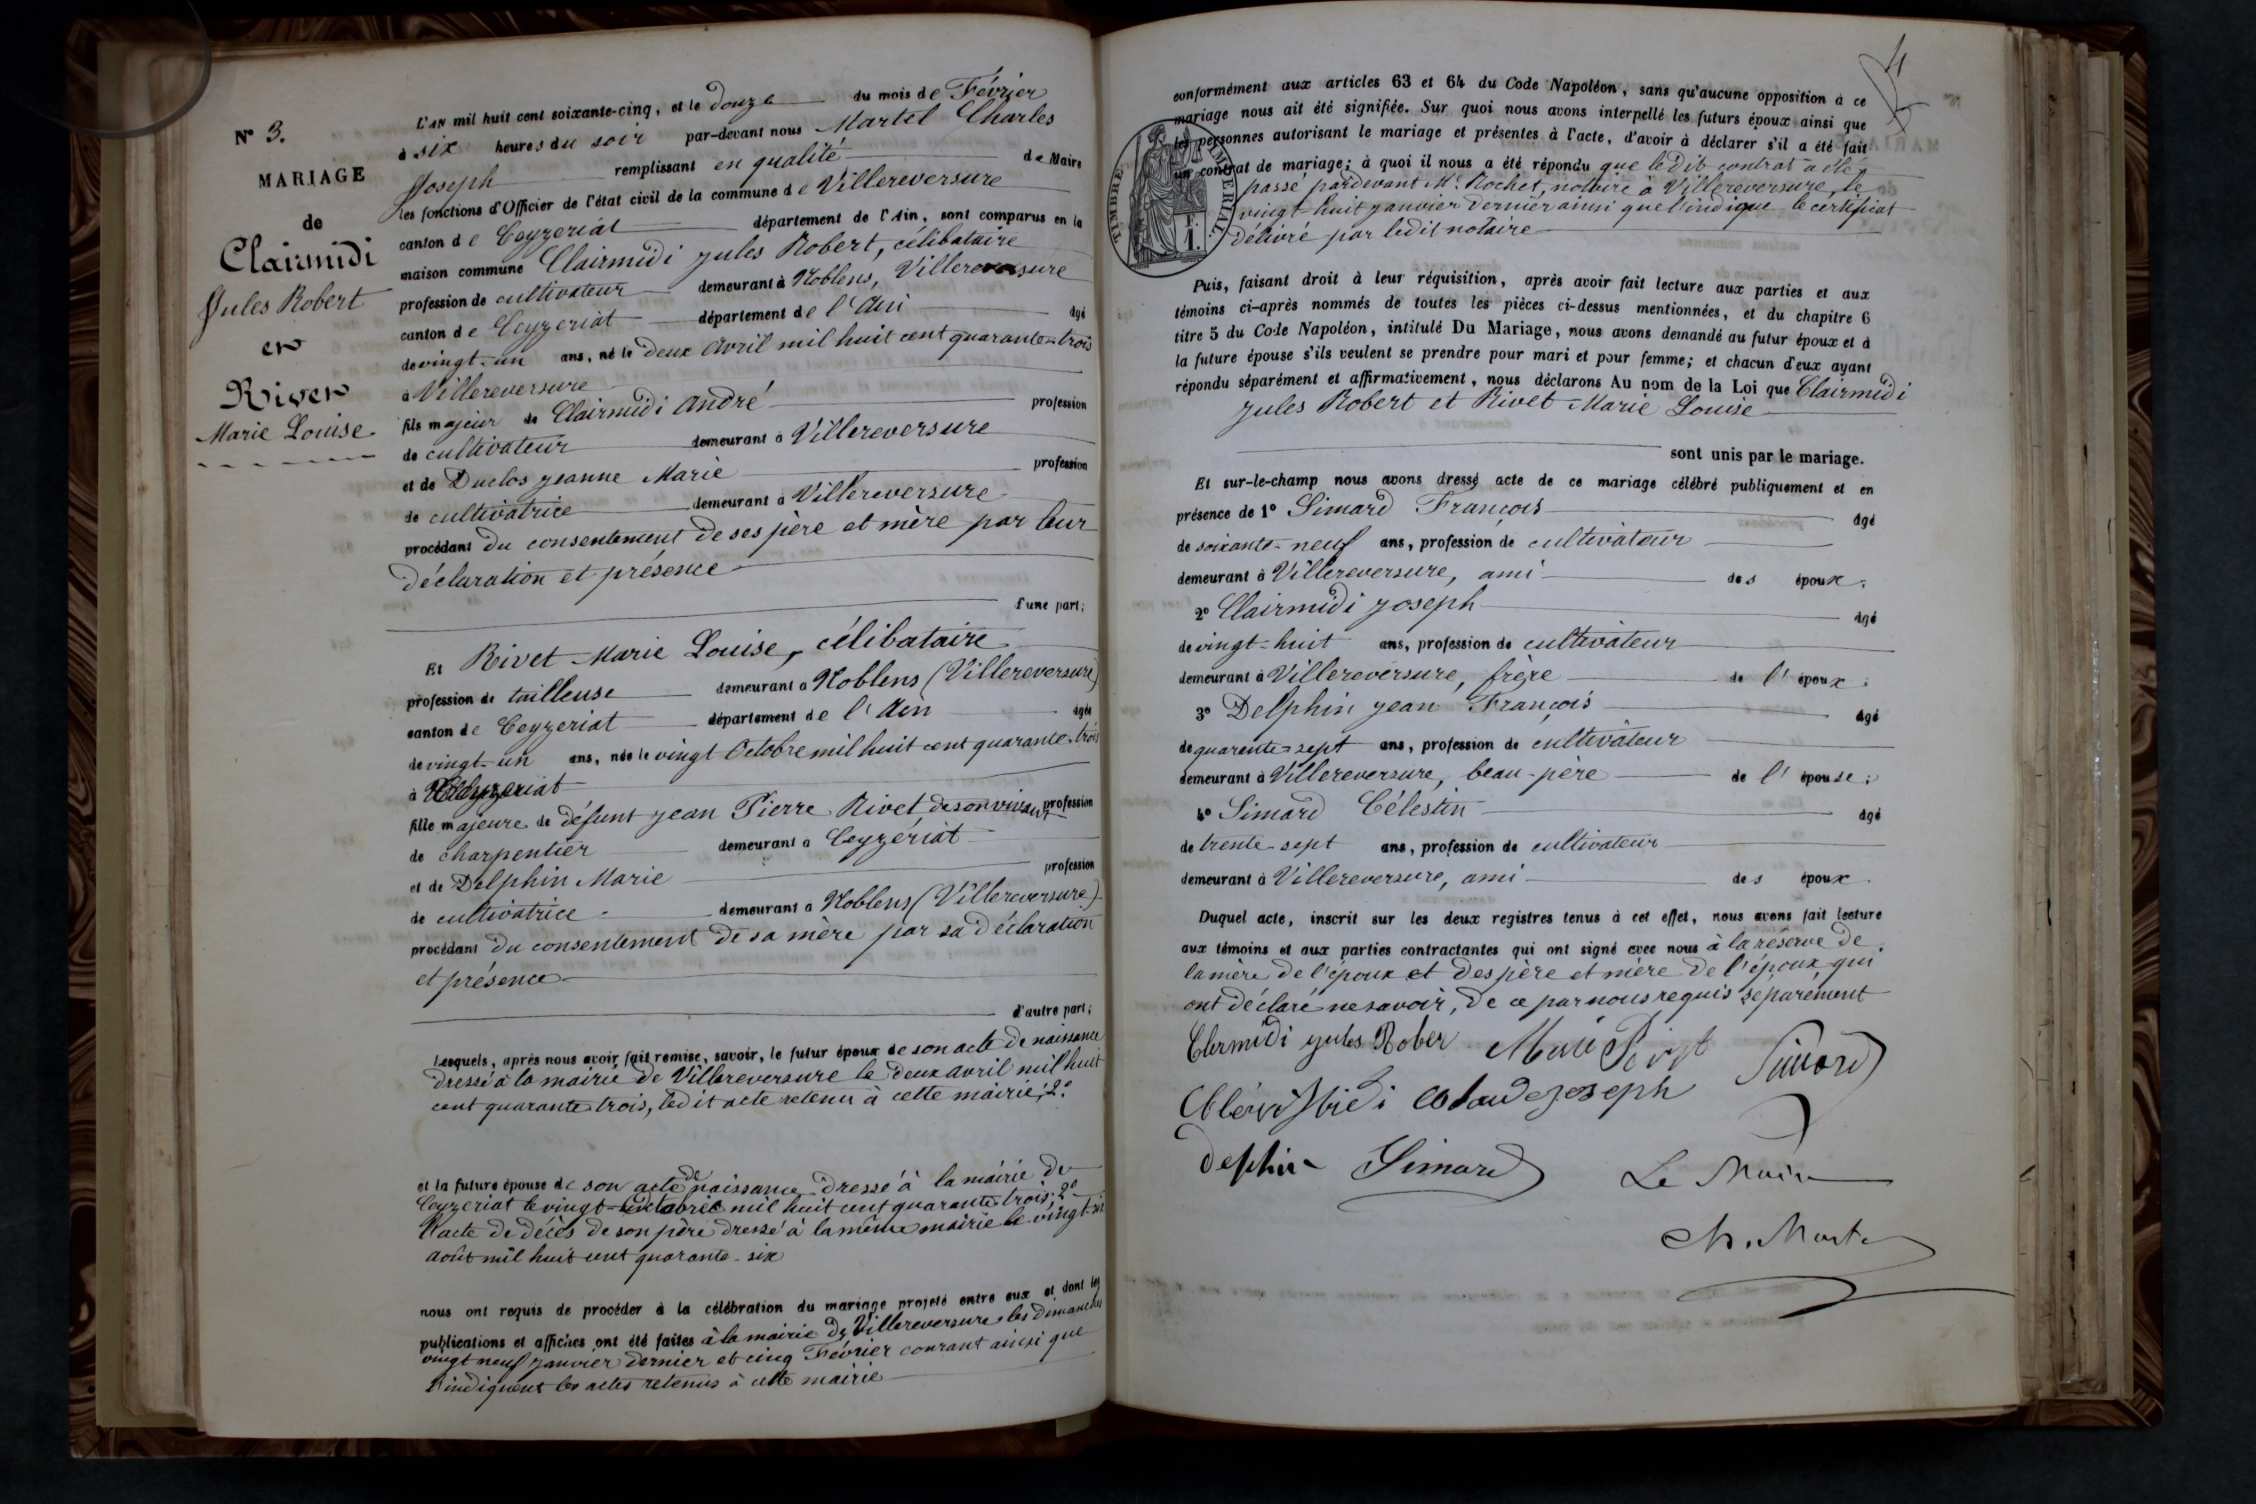 N° 3.
MARIAGE
de
Clairmidi
Jules Robert
et
Rivet
Marie Louise
L'AN mil huit cent soixante-cinq, et le douze du mois de Février
à six heures du soir par-devant nous Martel Charles
Joseph remplissant en qualité de Maire
les fonctions d'Officier de l'état civil de la commune de Villereversure
canton de Ceyzeriat département de l'Ain, sont comparus en la
maison commune Clairmidi Jules Robert, célibataire
profession de cultivateur demeurant à Noblens, Villereversure
canton de Ceyzeriat département de l'Ain âgé
de vingt-un ans, né le deux Avril mil huit cent quarante-trois
à Villereversure
fils majeur de Clairmidi André profession
de cultivateur demeurant à Villereversure
et de Duclos Jeanne Marie profession
de cultivatrice demeurant à Villereversure
procédant du consentement de ses père et mère par leur
déclaration et présence
d'une part;
Et Rivet Marie Louise, célibataire
profession de tailleuse demeurant à Noblens (Villereversure)
canton de Ceyzeriat département de l'Ain âgée
de vingt-un ans, née le vingt Octobre mil huit cent quarante-trois
à Ceyzeriat
fille majeure de défunt Jean Pierre Rivet de son vivant profession
de charpentier demeurant à Ceyzériat
et de Delphin Marie profession
de cultivatrice demeurant à Noblens (Villereversure)
procédant du consentement de sa mère par sa déclaration
et présence
d'autre part;
Lesquels, après nous avoir fait remise, savoir, le futur époux de son acte de naissance
dressé à la mairie de Villereversure le deux avril mil huit
cent quarante-trois, ledit acte retenu à cette mairie; 2°
et la future épouse de son acte de naissance dressé à la mairie de
Ceyzeriat le vingt-octobre mil huit cent quarante-trois; 2°
l'acte de décès de son père dressé à la même mairie le vingt-six
août mil huit cent quarante-six
nous ont requis de procéder à la célébration du mariage projeté entre eux et dont les
publications et affiches ont été faites à la mairie de Villereversure les dimanches
vingt neuf janvier dernier et cinq Février courant ainsi que
l'indiquent les actes retenus à cette mairie
4
conformément aux articles 63 et 64 du Code Napoléon, sans qu'aucune opposition à ce
mariage nous ait été signifiée. Sur quoi nous avons interpellé les futurs époux ainsi que
les personnes autorisant le mariage et présentes à l'acte, d'avoir à déclarer s'il a été fait
un contrat de mariage; à quoi il nous a été répondu que ledit contrat a été
passé pardevant Mr. Rochet, notaire à Villereversure, le
vingt-huit janvier dernier ainsi que l'indique le certificat
délivré par ledit notaire
TIMBRE IMPERIAL
1 F.
Puis, faisant droit à leur réquisition, après avoir fait lecture aux parties et aux
témoins ci-après nommés de toutes les pièces ci-dessus mentionnées, et du chapitre 6
titre 5 du Code Napoléon, intitulé Du Mariage, nous avons demandé au futur époux et à
la future épouse s'ils veulent se prendre pour mari et pour femme; et chacun d'eux ayant
répondu séparément et affirmativement, nous déclarons Au nom de la Loi que Clairmidi
Jules Robert et Rivet Marie Louise
sont unis par le mariage.
Et sur-le-champ nous avons dressé acte de ce mariage célébré publiquement et en
présence de 1° Simard François âgé
de soixante-neuf ans, profession de cultivateur
demeurant à Villereversure, ami des époux;
2° Clairmidi Joseph âgé
de vingt-huit ans, profession de cultivateur
demeurant à Villereversure, frère de l'époux;
3° Delphin Jean François âgé
de quarente-sept ans, profession de cultivateur
demeurant à Villereversure, beau-père de l'épouse;
4° Simard Célestin âgé
de trente-sept ans, profession de cultivateur
demeurant à Villereversure, ami des époux.
Duquel acte, inscrit sur les deux registres tenus à cet effet, nous avons fait lecture
aux témoins et aux parties contractantes qui ont signé avec nous à la réserve de
la mère de l'époux et des père et mère de l'époux, qui
ont déclaré ne savoir, de ce par nous requis séparément
Clermidi jules Rober Marie Rivet Simard
Clérmidi Claude joseph
delphin Simard Le Maire
Ch. Martel